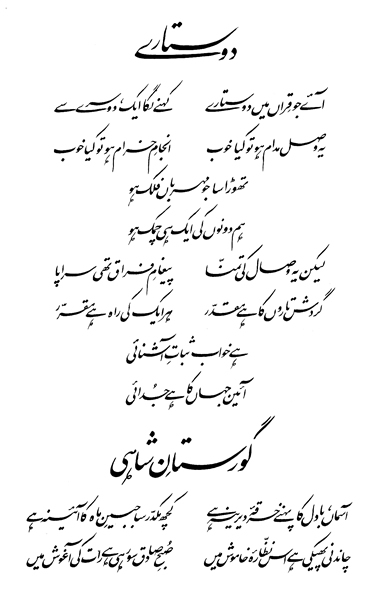 دو ستارے
آئے جو قراں میں دو ستارے کہنے لگا ایک، دوسرے سے
یہ وصل مدام ہو تو کیا خوب انجامِ خرام ہو تو کیا خوب
تھوڑا سا جو مہرباں فلک ہو
ہم دونوں کی ایک ہی چمک ہو
لیکن یہ وصال کی تمنّا پیغامِ فراق تھی سراپا
گردش تاروں کا ہے مقدّر ہر ایک کی راہ ہے مقرّر
ہے خواب ثباتِ آشنائی
آئین جہاں کا ہے جُدائی
گورستانِ شاہی
آسماں، بادل کا پہنے خرقۂ دیرینہ ہے کچھ مکدّر سا جبینِ ماہ کا آئینہ ہے
چاندنی پھیکی ہے اس نظّارۂ خاموش میں صُبحِ صادق سو رہی ہے رات کی آغوش میں